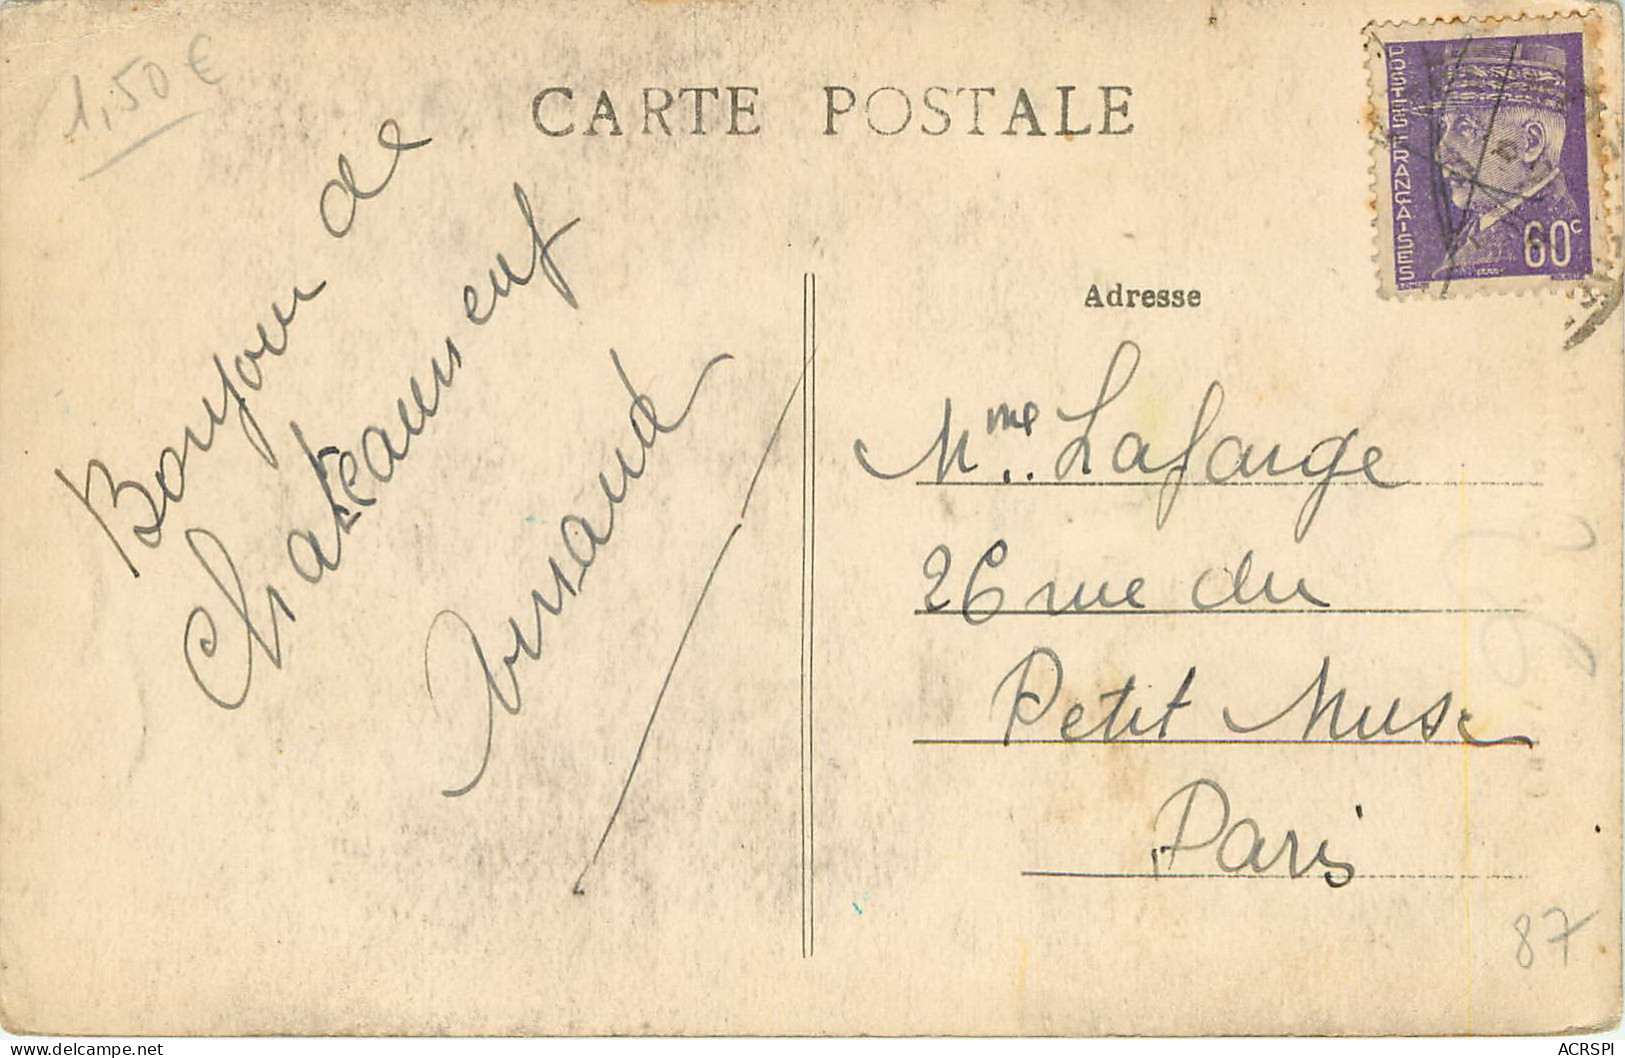 1,50 €
CARTE POSTALE
Bonjour de
Chateauneuf
POSTES FRANÇAISES
60c
Adresse
Mme Lafarge
26 rue du
Petit Musc
Paris
87
ACRSPI